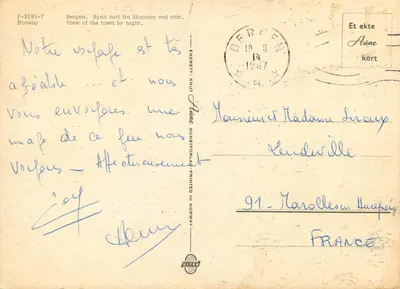 F-5195-7
Norway
Bergen. Byen sett fra Skansen ved natt.
View of the town by night.
Notre voyage est très
agréable ... et nous
vous envoyons une
image de ce que nous
voyons - Affectueusement
Henri
ENERETT: KNUT Aune KUNSTFORLAG PRINTED IN NORWAY
BERGEN
10 8
14
1967
Et ekte
Aune
kort
Monsieur et Madame
Lendeville
91 - Marolles en Hurepoix
FRANCE